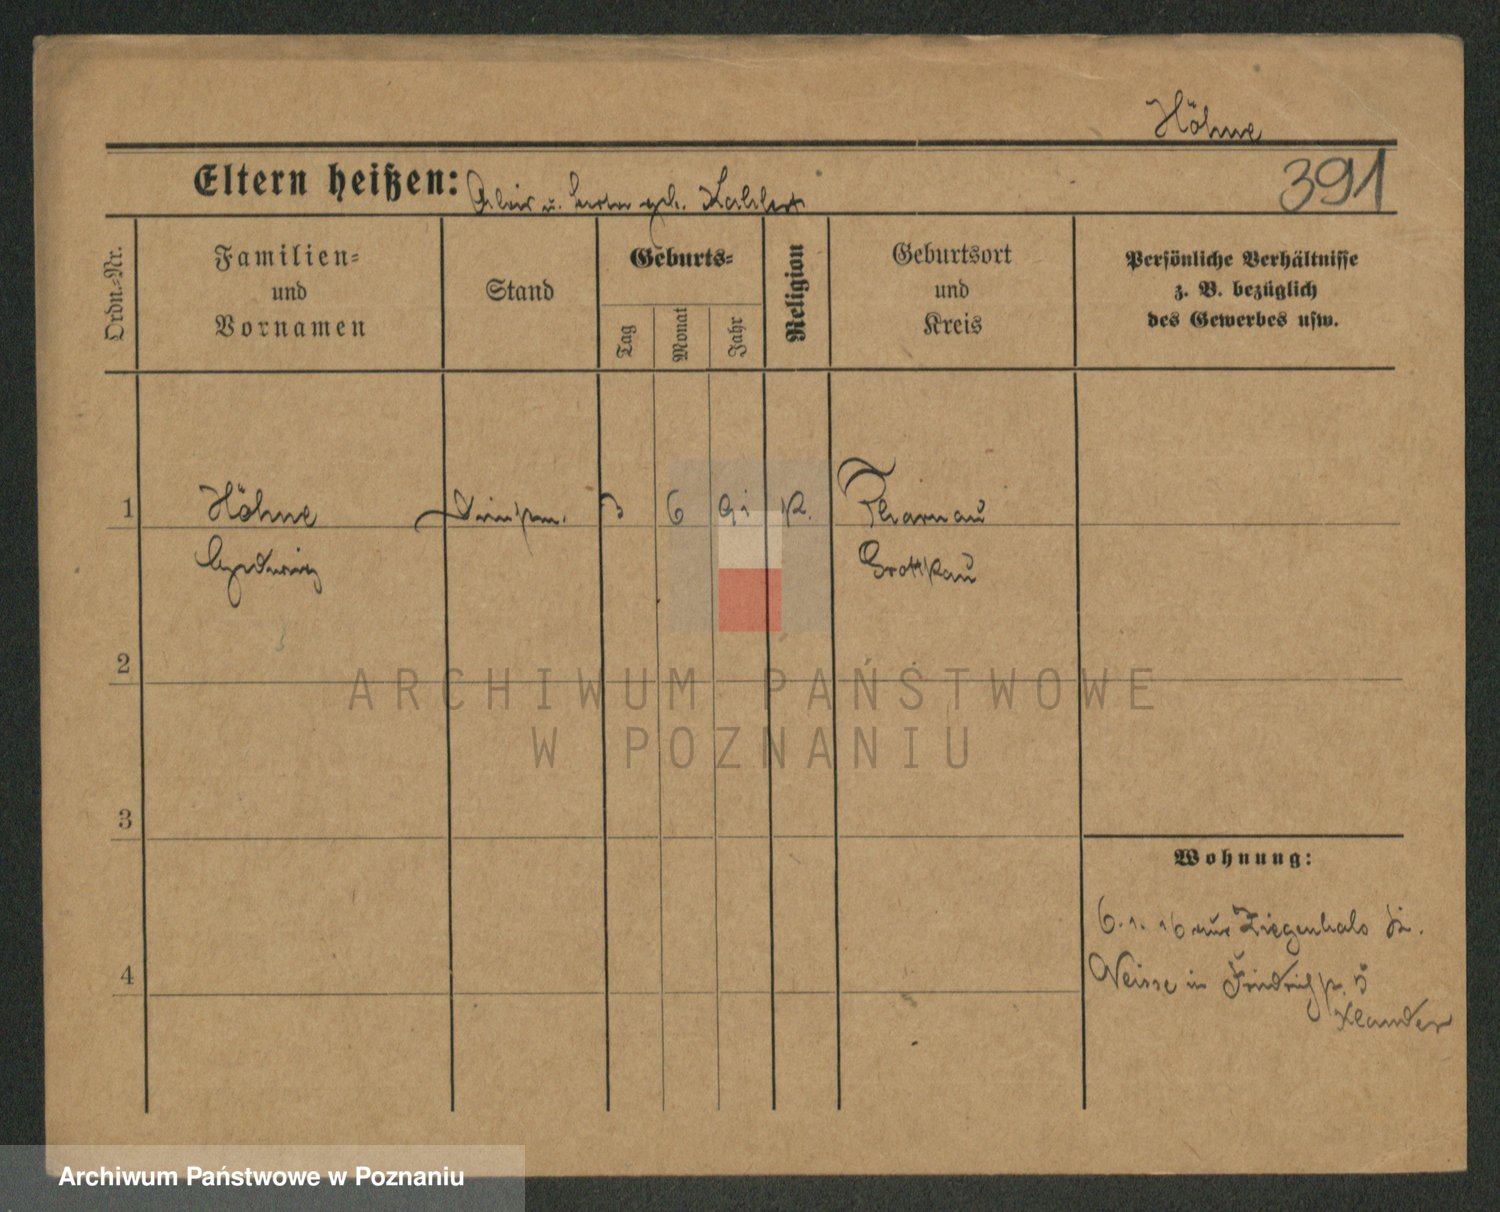 Höhne
Eltern heißen: u. geb.
391
Ordn.-Nr.
Familien-
und
Vornamen
Stand
Geburts-
Tag
Monat
Jahr
Religion
Geburtsort
und
Kreis
Persönliche Verhältnisse
z. B. bezüglich
des Gewerbes usw.
1
Höhne
6
91
K.
Tharnau
Hedwig
Grottkau
2
ARCHIWUM PAŃSTWOWE
W POZNANIU
3
Wohnung:
6. 1. 16 aus Ziegenhals
4
Neisse in 5
Archiwum Państwowe w Poznaniu